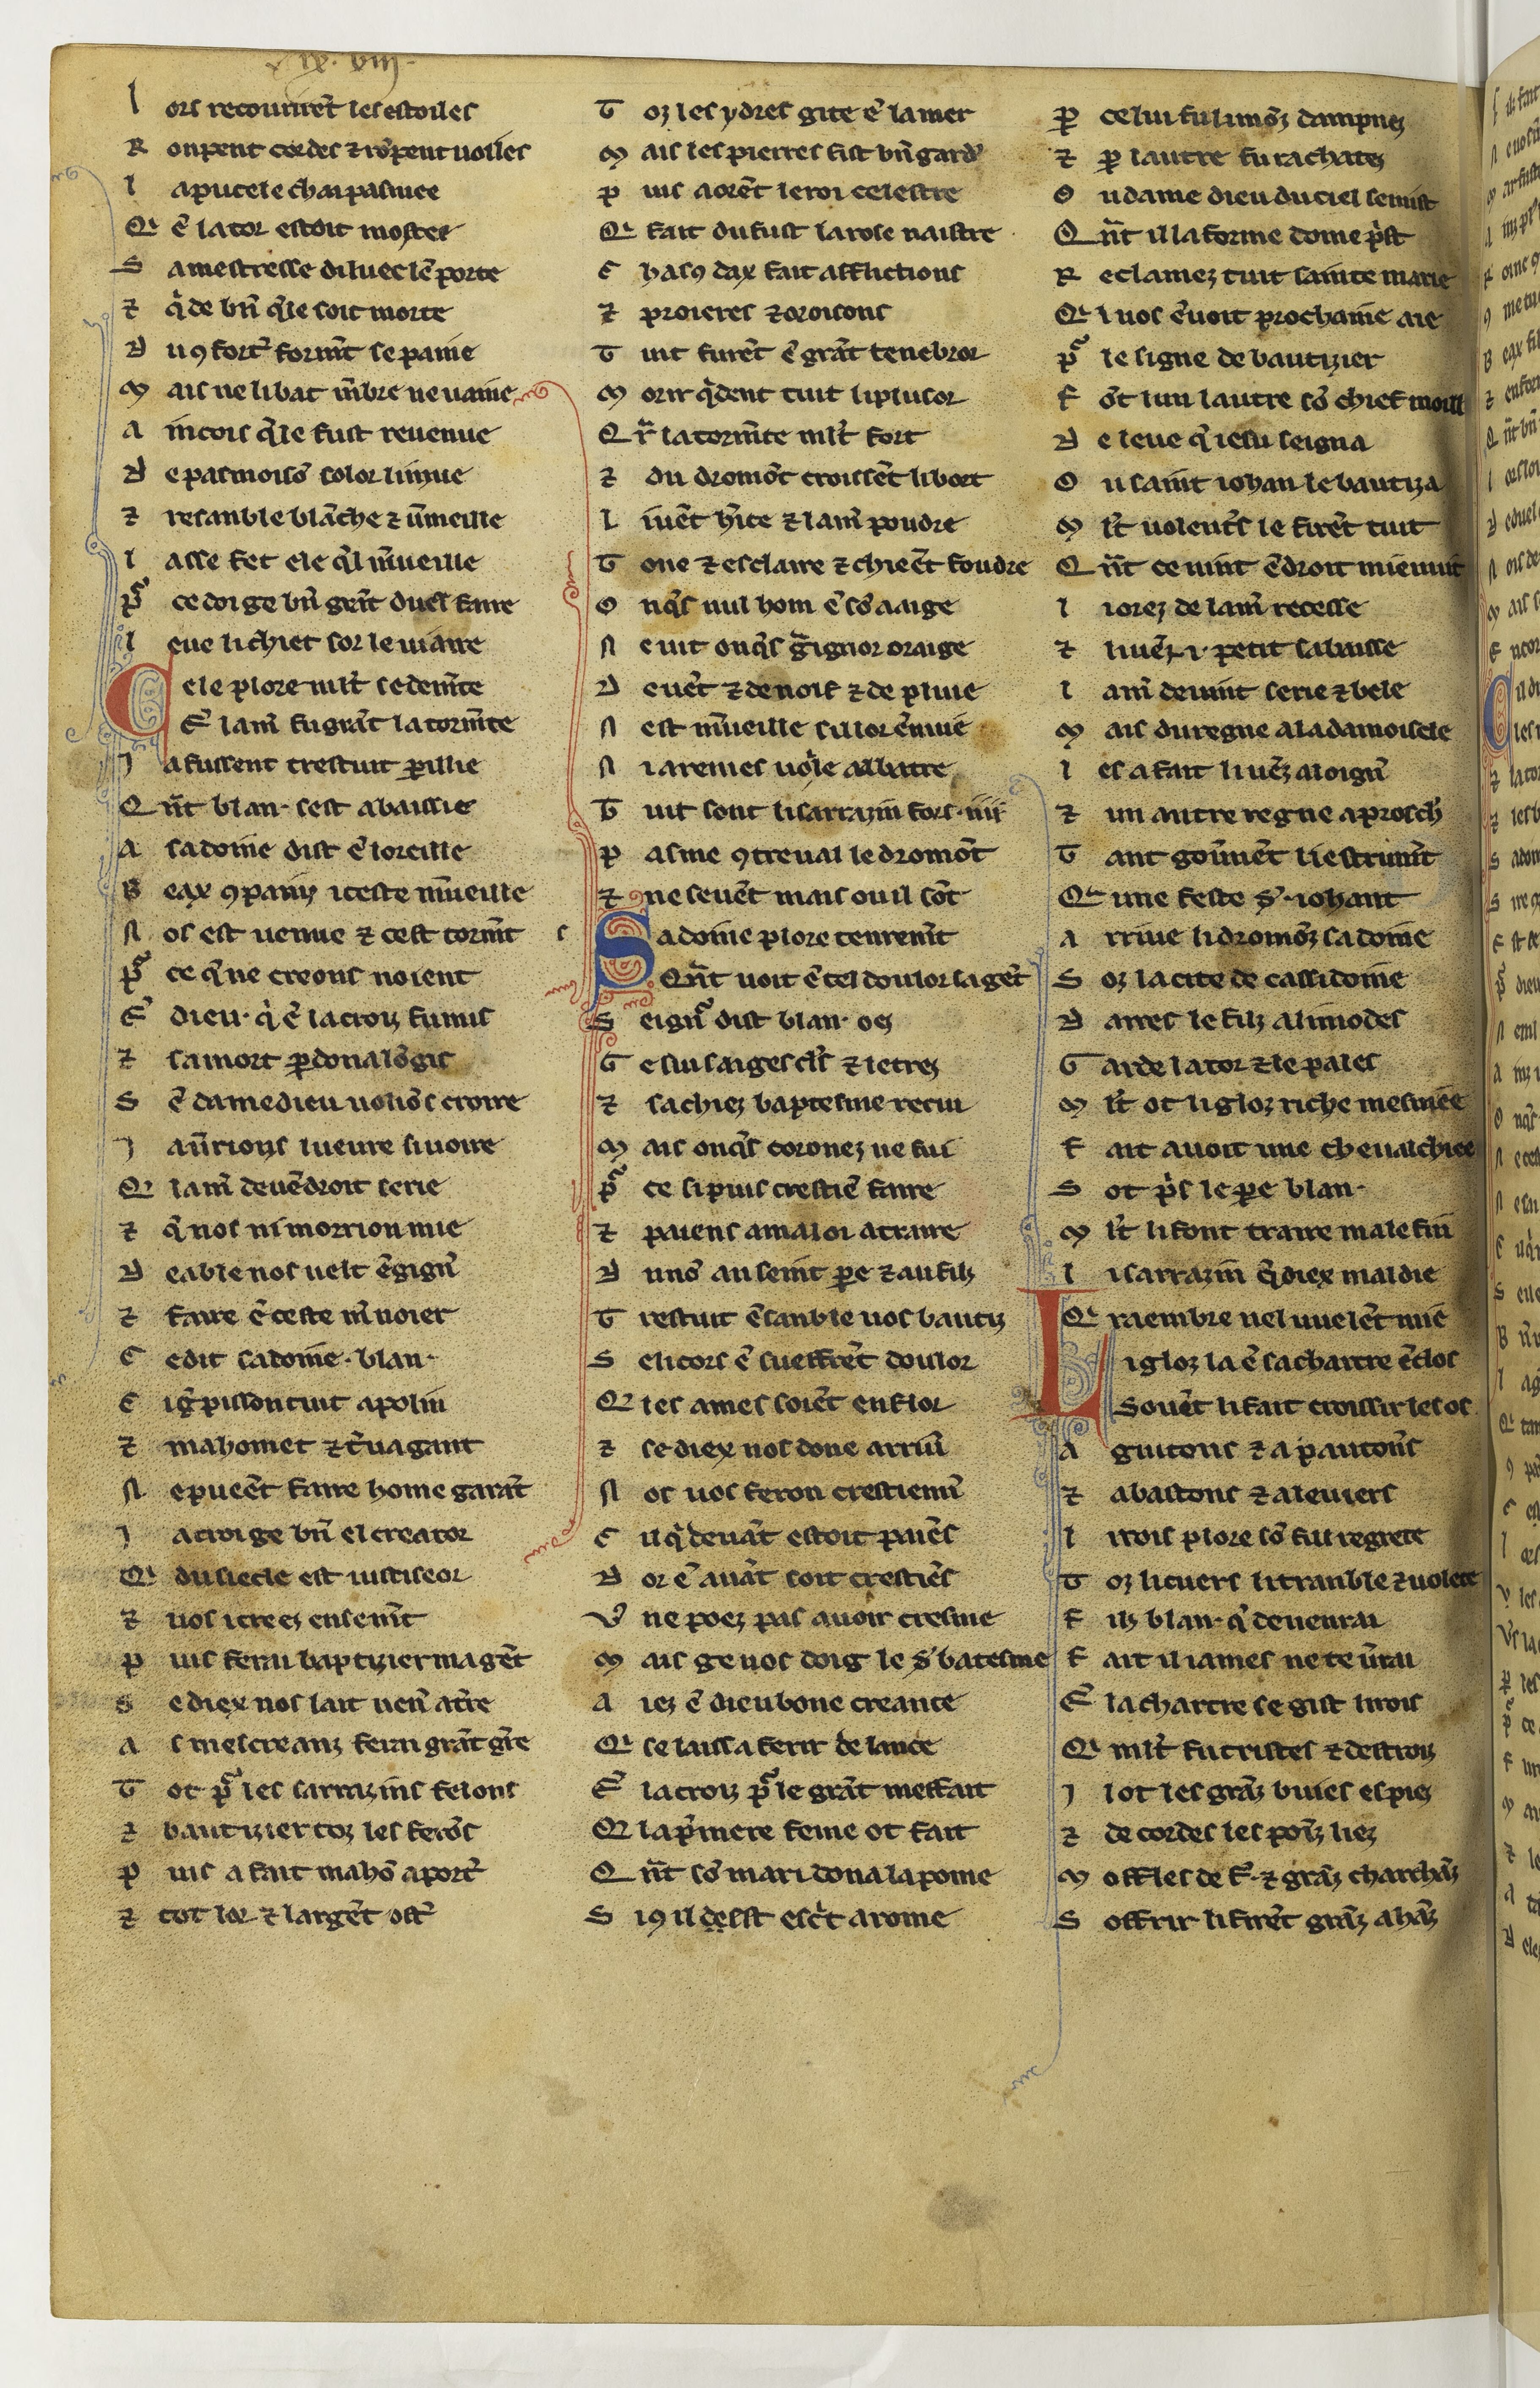 ix. viii.
l ors recourirẽt les estoiles
R onpent cordes ⁊ rõpent uoiles
l a pucele chai pasmee
Q ẽ la tor estoit mostee
S a mestresse diluec lẽ porte
⁊ q̃de bñ q̃le soit morte
D ꝯfortᷣ formt̃ se paine
M ais ne li bat mẽbre ne uaine
A incois q̃le fust reuenue
D e pasmoisõ color li mue
⁊ resanble blãche ⁊ ũmeille
l asse fet ele q̃l mũeille
P̃ ce doi ge bñ grñt duel faire
l eue li chiet sor le uiaire
C ele plore mlt̃ se demẽte
E ̃ lam̃ fu grãt la tormẽte
J a fussent trestuit ꝑillie
Q ñt blan· sest abaissie
A sadoine dist ẽ loreille
B eax ꝯpainz iceste mũeille
N os est uenue ⁊ cest tormt̃
P̃ ce q̃ ne creons noient
E ̃ dieu· q̃ ẽ la croiz fu mis
⁊ sa mort ꝑdona lõgis
S ẽ damedieu uoliõs croire
J aũrions lueure si uoire
Q lam̃ deuẽdroit serie
⁊ q̃ nos ni morrion mie
D eable nos uelt ẽgigñ
⁊ faire ẽ ceste m̃ noier
C e dit sadoine· blan·
C ig̃pisson tuit apolin
⁊ mahomet ⁊ t̃uagant
N e pueẽt faire home garãt
J a croi ge bñ el creator
Q du siecle est iustiseor
⁊ uos icreez ensemt̃
P uis ferai baptizier ma gẽt
S e diex nos lait uenᷣ at̃re
A s mescreanz ferai grãt gr̃e
T ot p̃ les sarrazins felons
⁊ bautizier toz les ferõs
P uis a fait mahõ aportᷣ
⁊ tot lor ⁊ largẽt ostᷣ
T oz les ydres gite ẽ la mer
M ais les pierres fist bñ gardᷣ
P uis aorẽt le roi celestre
Q fait du fust la rose naistre
C hasꝯ dax fait afflictions
⁊ proieres ⁊ oroisons
T uit furẽt ẽ grãt tenebror
M orir q̃dent tuit li plusor
Q r̃ la tormẽte mlt̃ fort
⁊ du dromõt croissẽt li bort
l iuẽt h̃ice ⁊ lam̃ poudre
T one ⁊ esclaire ⁊ chieẽt foudre
O nq̃s nul hom ẽ sõ aaige
N e uit onq̃s g̃ignor oraige
D e uẽt ⁊ de noif ⁊ de pluie
N est mũeille sil lor ẽnuie
N i a remes uoi̾le a abatre
T uit sont li sarrazin fors· iiii
P asme ꝯtreual le dromõt
⁊ ne seuẽt mais ou il sõt
S adoine plore tenremt̃
Q ñt uoit ẽ tel doulor sa gẽt
S eignᷣ dist blan· oez
G e sui saiges cl̃s ⁊ letrez
⁊ sachiez baptesme recui
M ais onq̃s coronez ne fui
P̃ ce si puis crestiẽ faire
⁊ paiens a ma loi atraire
D unõ au seint ꝑe ⁊ au filz
T restuit ẽsanble uos bautiz
S e li cors ẽ sueffrẽt doulor
Q les ames soiẽt en flor
⁊ se diex nos done arriũ
N os uos feron crestienñ
C il q̃ deuãt estoit paiẽs
D or ẽ auãt soit crestiẽs
V ne poez pas auoir cresme
M ais ge uos doig le s̃ batesme
A iez ẽ dieu bone creance
Q se laissa ferir de lance
E ̃ la croiz p̃ le grãt meffait
Q la p̃miere feme ot fait
Q ñt sõ mari dona la pome
S iꝯ il de lst esc̃t a rome
P celui fu li mõz dampnez
⁊ ꝑ lautre fu rachatez
O u dame dieu du ciel se mist
Q ñt il la forme dome p̃st
R eclamez tuit sainte marie
Q l uos ẽuoit prochaine aie
P̃ le signe de bautizier
F õt lun lautre sõ chief moill
D e leue q̃ iesu seigna
O u saint iohan le bautiza
M lt̃ uolentᷣs le firẽt tuit
Q ñt ce uint ẽdroit mienuit
l i orez de lam̃ recesse
⁊ li uẽz ·i· petit sabaisse
l am̃ deuint serie ⁊ bele
M ais du regne a la damoisele
l es a fait li uẽz aloignᷣ
⁊ un autre regne aproschᷣ
T ant goũnẽt li estrumt̃
Q une feste s̃· iohant
A rriue li dromõz sadoine
S oz la cite de cassidoine
D aires le filz alimodes
G arde la tor ⁊ le pales
M lt̃ ot li gloz riche mesniee
F ait auoit une cheualchiee
S ot p̃s le ꝑe blan·
M lt̃ li font traire male fin
l i sarrazin q̃ diex maldie
Q raembre nel uuelẽt mie
L i gloz la ẽ sa chartre ẽclos
Souẽt li fait croissir les os
A guitons ⁊ a pautoñs
⁊ a bastons ⁊ a leuiers
l i rois plore sõ fil regrete
T oz li cuers li tranble ⁊ uolete
F ilz blan· q̃ deuenrai
F ait il iames ne te ũrai
E ̃ la chartre se gist li rois
Q mlt̃ fu tristes ⁊ destroiz
J l ot les grãz buies es piez
⁊ de cordes les poĩz liez
M offles de f̃· ⁊ grãz charchãz
S offrir li firẽt grãz ahãz